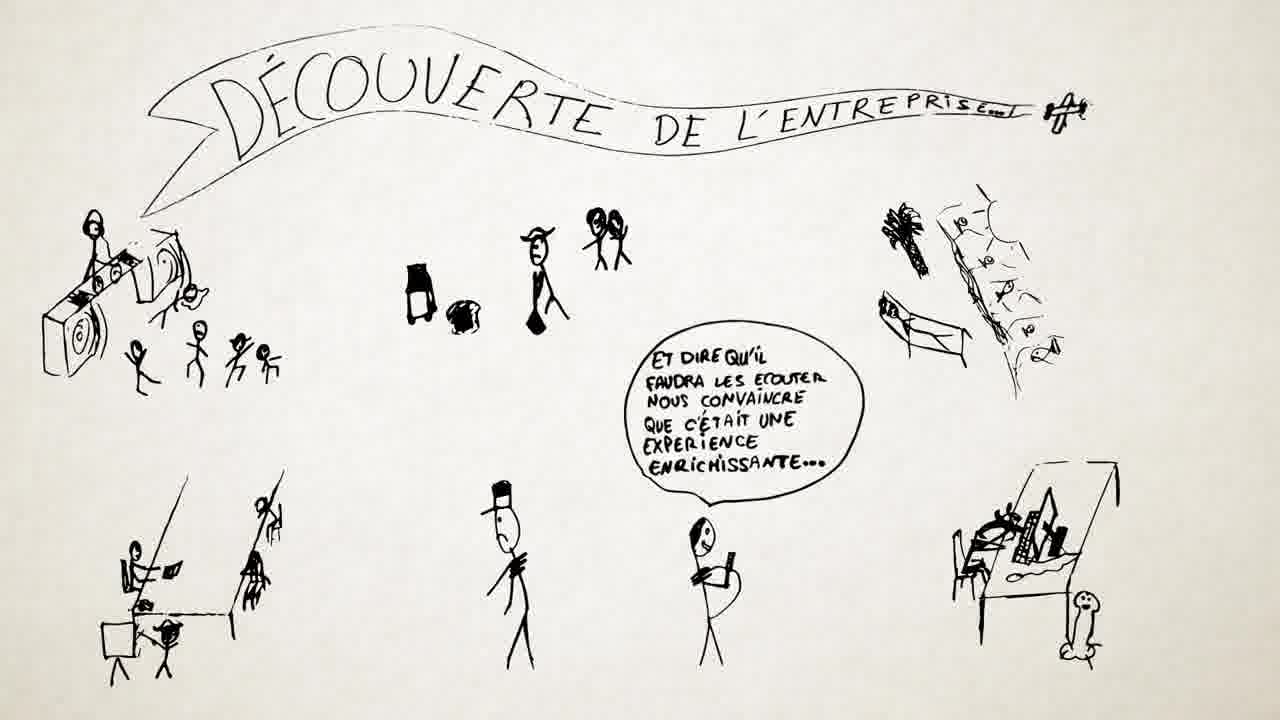 DÉCOUVERTE DE L'ENTREPRISE...!
ET DIRE QU'IL
FAUDRA LES ECOUTER
NOUS CONVAINCRE
QUE C'ÉTAIT UNE
EXPERIENCE
ENRICHISSANTE...